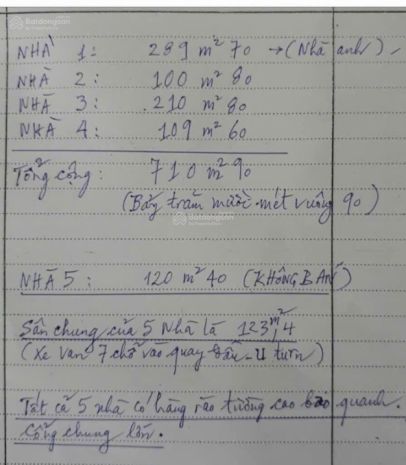 Batdongsan
NHÀ 1: 289 m² 70 → (Nhà anh)
NHÀ 2: 100 m² 80
NHÀ 3: 210 m² 80
NHÀ 4: 109 m² 60
Tổng cộng: 710 m² 90
(Bảy trăm mười mét vuông 90)
Batdongsan
NHÀ 5: 120 m² 40 (KHÔNG BÁN)
Sân chung của 5 Nhà là 123 m² 4
(Xe Van 7 chỗ vào quay đầu - U turn)
Tất cả 5 nhà có hàng rào tường cao bao quanh.
Cổng chung lớn.